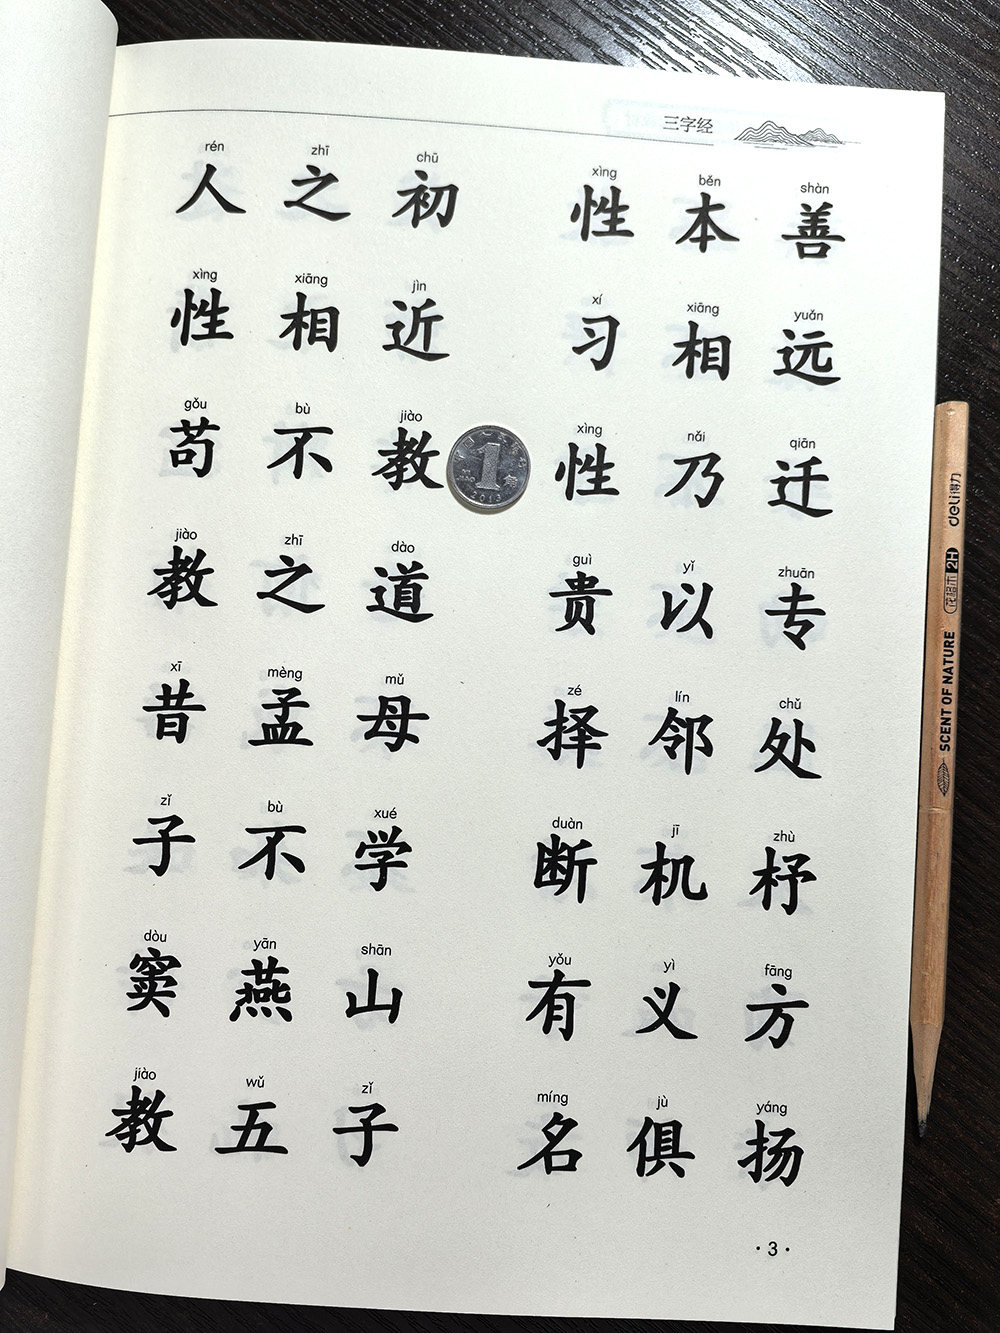 三字经
rén zhī chū xìng běn shàn
人之初 性本善
xìng xiāng jìn xí xiāng yuǎn
性相近 习相远
gǒu bù jiào xìng nǎi qiān
苟不教 性乃迁
jiào zhī dào guì yǐ zhuān
教之道 贵以专
xī mèng mǔ zé lín chǔ
昔孟母 择邻处
zǐ bù xué duàn jī zhù
子不学 断机杼
dòu yān shān yǒu yì fāng
窦燕山 有义方
jiào wǔ zǐ míng jù yáng
教五子 名俱扬
·3·
1
角
2013
SCENT OF NATURE 2H deli得力